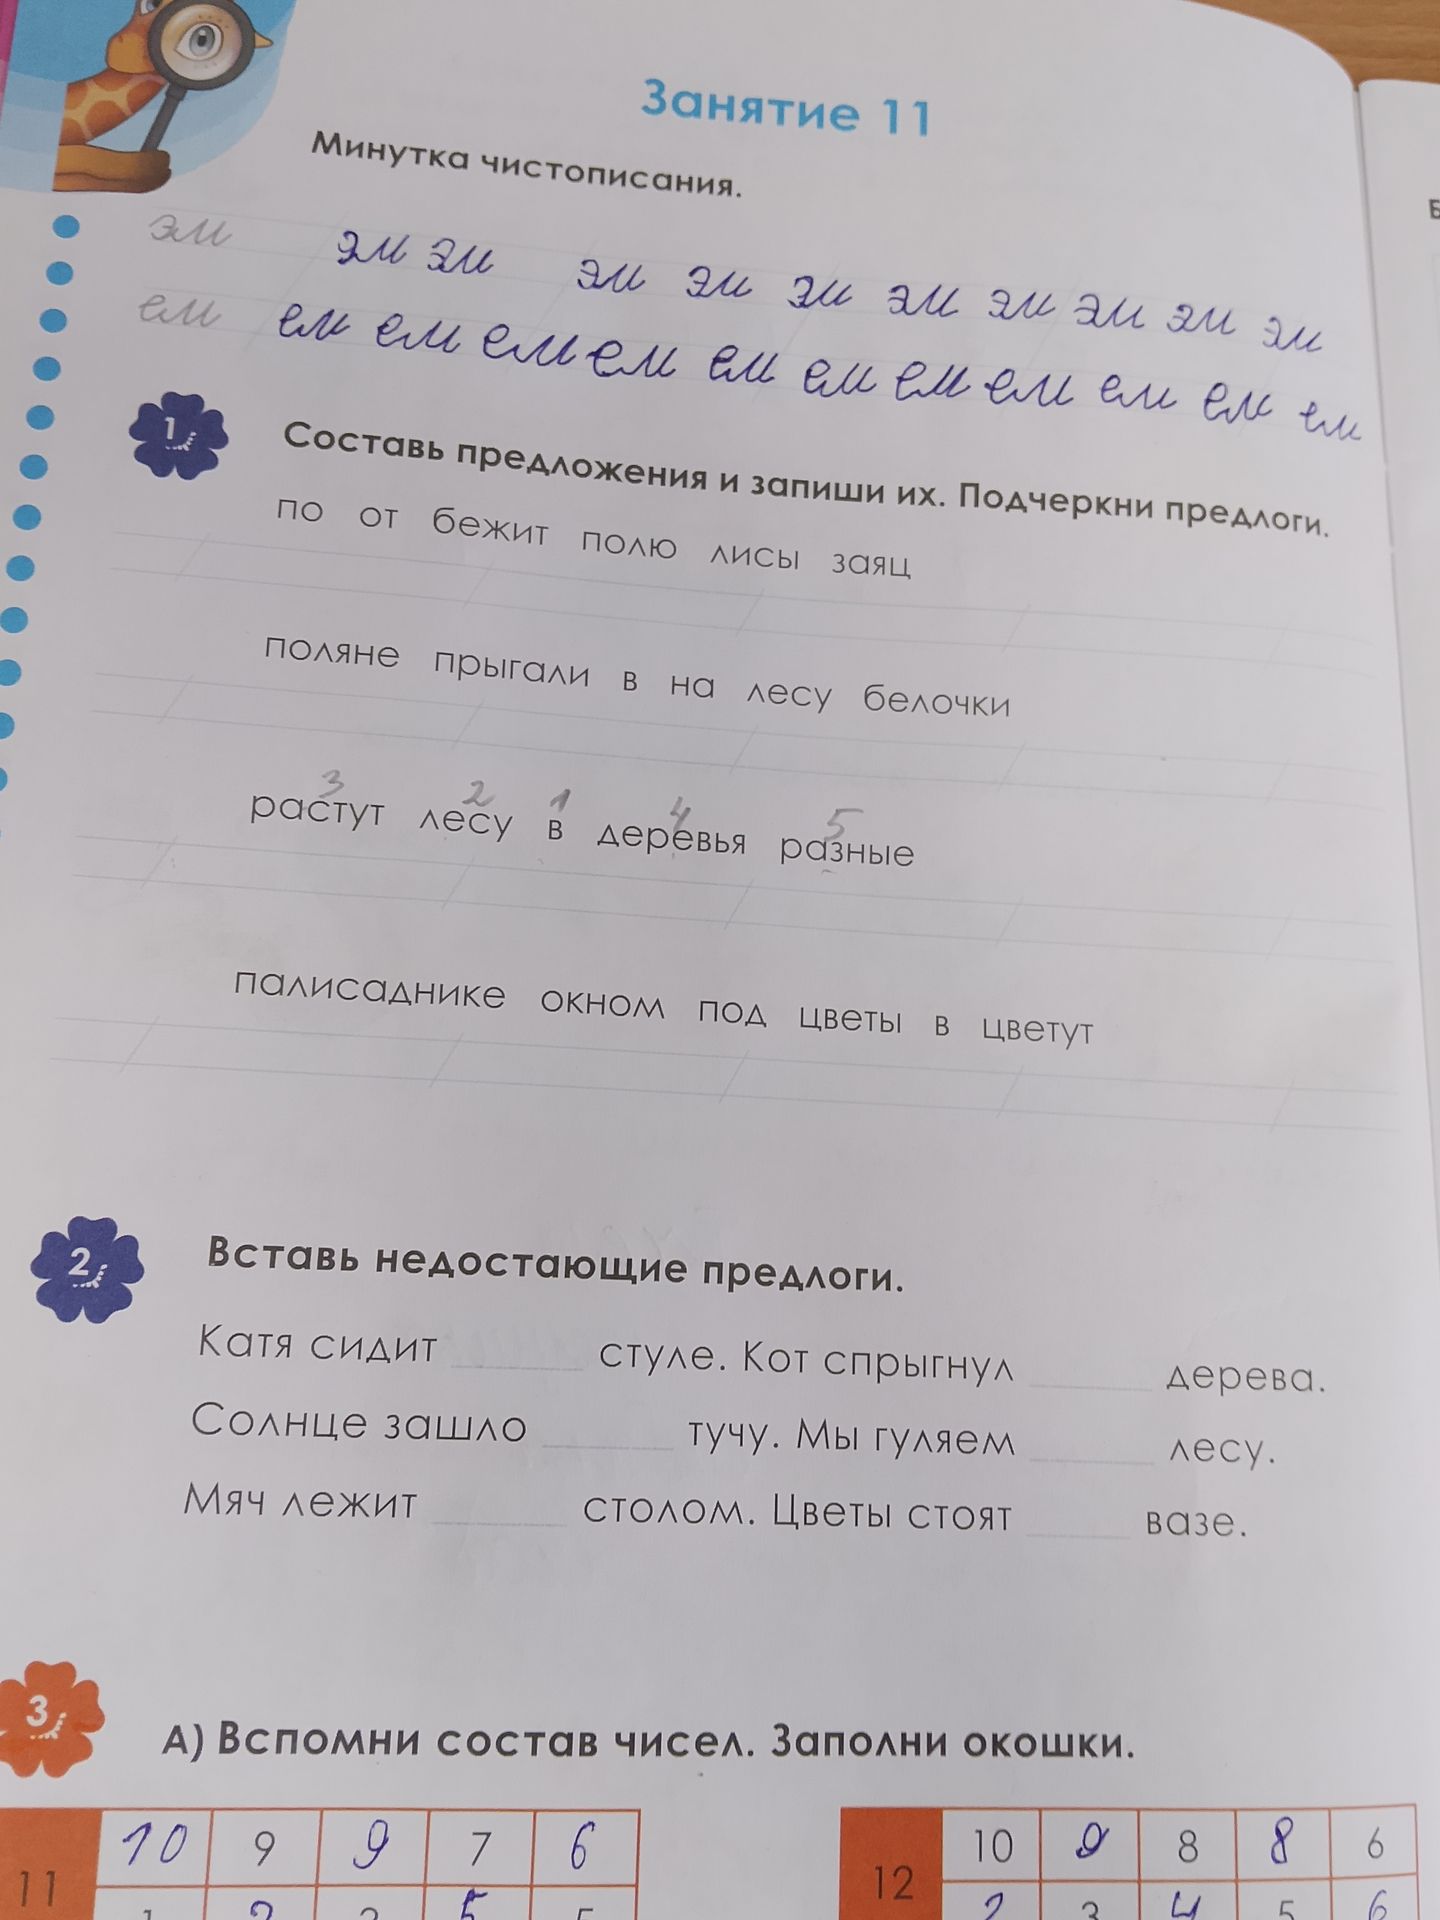 Занятие 11
Минутка чистописания.
эм эм эм эм эм эм эм эм эм эм эм
ем ем ем ем ем ем ем ем ем ем ем ем
1
Составь предложения и запиши их. Подчеркни предлоги.
по от бежит полю лисы заяц
поляне прыгали в на лесу белочки
3 2 1 4 5
растут лесу в деревья разные
палисаднике окном под цветы в цветут
2
Вставь недостающие предлоги.
Катя сидит стуле. Кот спрыгнул дерева.
Солнце зашло тучу. Мы гуляем лесу.
Мяч лежит столом. Цветы стоят вазе.
3
А) Вспомни состав чисел. Заполни окошки.
10 9 9 7 6 10 9 8 8 6
11 12
1 2 5 5 2 3 4 5 6